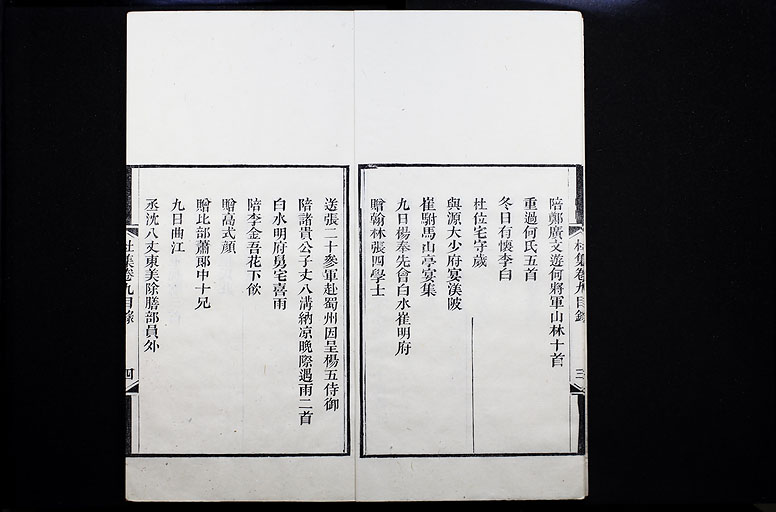 陪鄭廣文遊何將軍山林十首
重過何氏五首
冬日有懷李白
杜位宅守歲
與源大少府宴渼陂
崔駙馬山亭宴集
九日楊奉先會白水崔明府
贈翰林張四學士
杜集卷九目錄
三
送張二十參軍赴蜀州因呈楊五侍御
陪諸貴公子丈八溝納凉晚際遇雨二首
白水明府舅宅喜雨
陪李金吾花下飲
贈高式顔
贈比部蕭郎中十兄
九日曲江
丞沈八丈東美除膳部員外
杜集卷九目錄
四